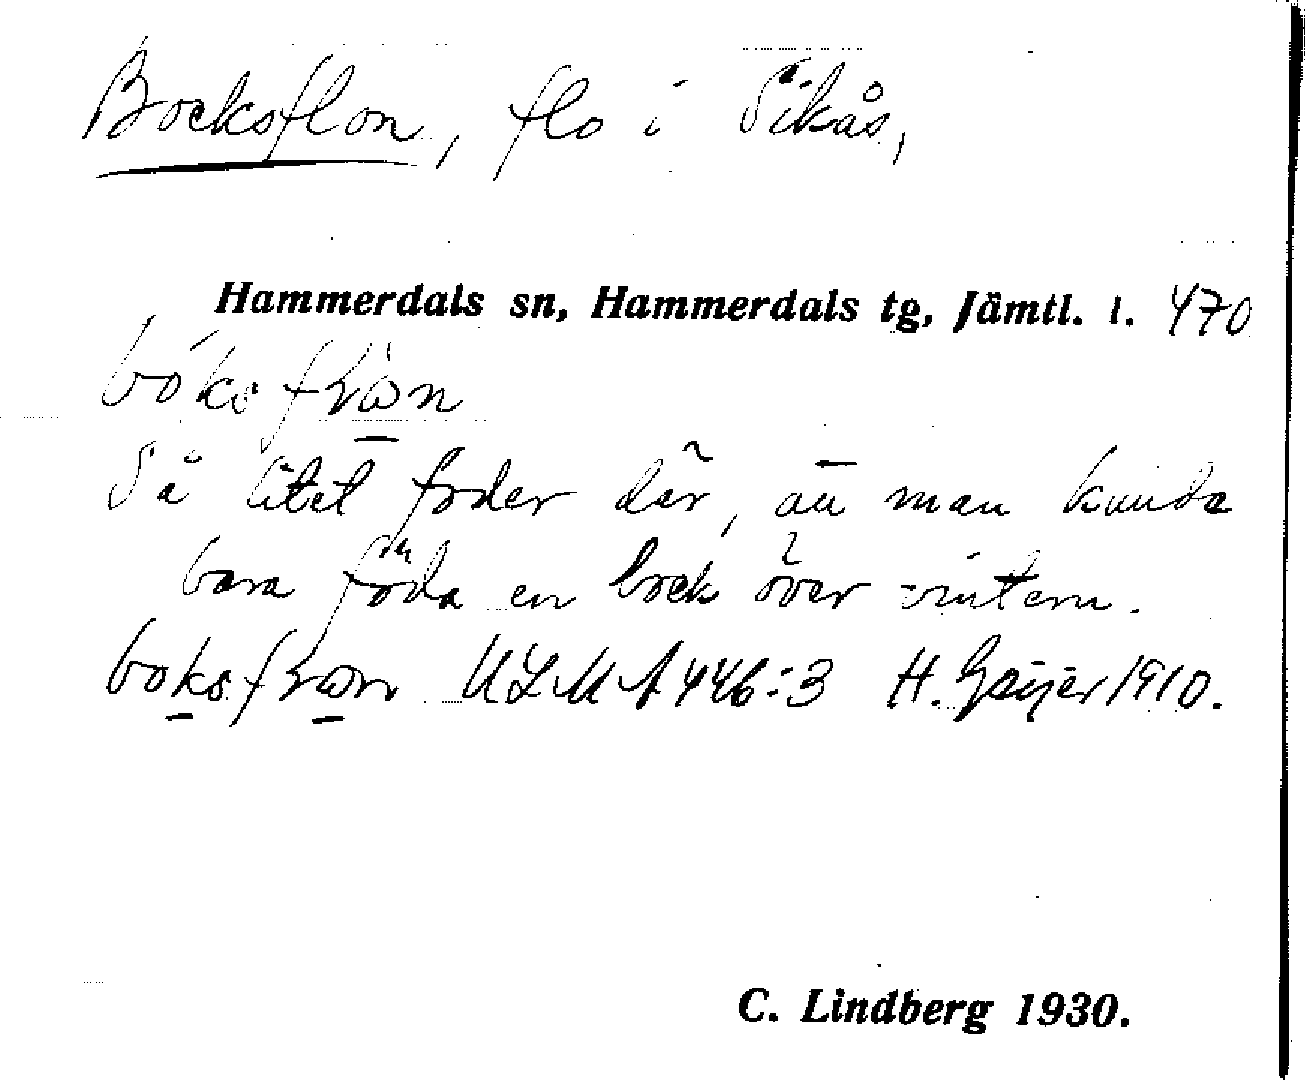 Bocksflon, flo i Sikås,
Hammerdals sn, Hammerdals tg, Jämtl. l. 470
Så litet foder där, att man kunde
bara föda en bock över vintern.
ULMA 446:3 H. Geijer 1910.
C. Lindberg 1930.